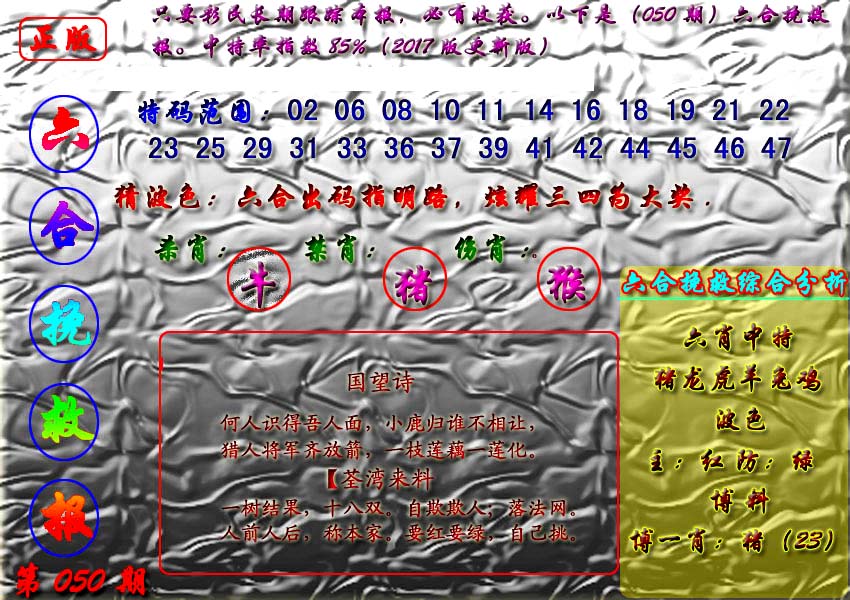 正版
只要彩民长期跟踪本报，必有收获。以下是（050期）六合挽救
报。中特率指数85%（2017版更新版）
六合挽救报
第050期
特码范围：02 06 08 10 11 14 16 18 19 21 22
23 25 29 31 33 36 37 39 41 42 44 45 46 47
猜波色：六合出码指明路，炫耀三四为大奖．
杀肖：牛 禁肖：猪 伤肖：。猴
国望诗
何人识得吾人面，小鹿归谁不相让，
猎人将军齐放箭，一枝莲藕一莲化。
【荃湾来料
一树结果，十八双。自欺欺人；落法网。
人前人后，称本家。要红要绿，自己挑。
六合挽救综合分析
六肖中特
猪龙虎羊兔鸡
波色
主：红防：绿
博料
博一肖：猪（23）